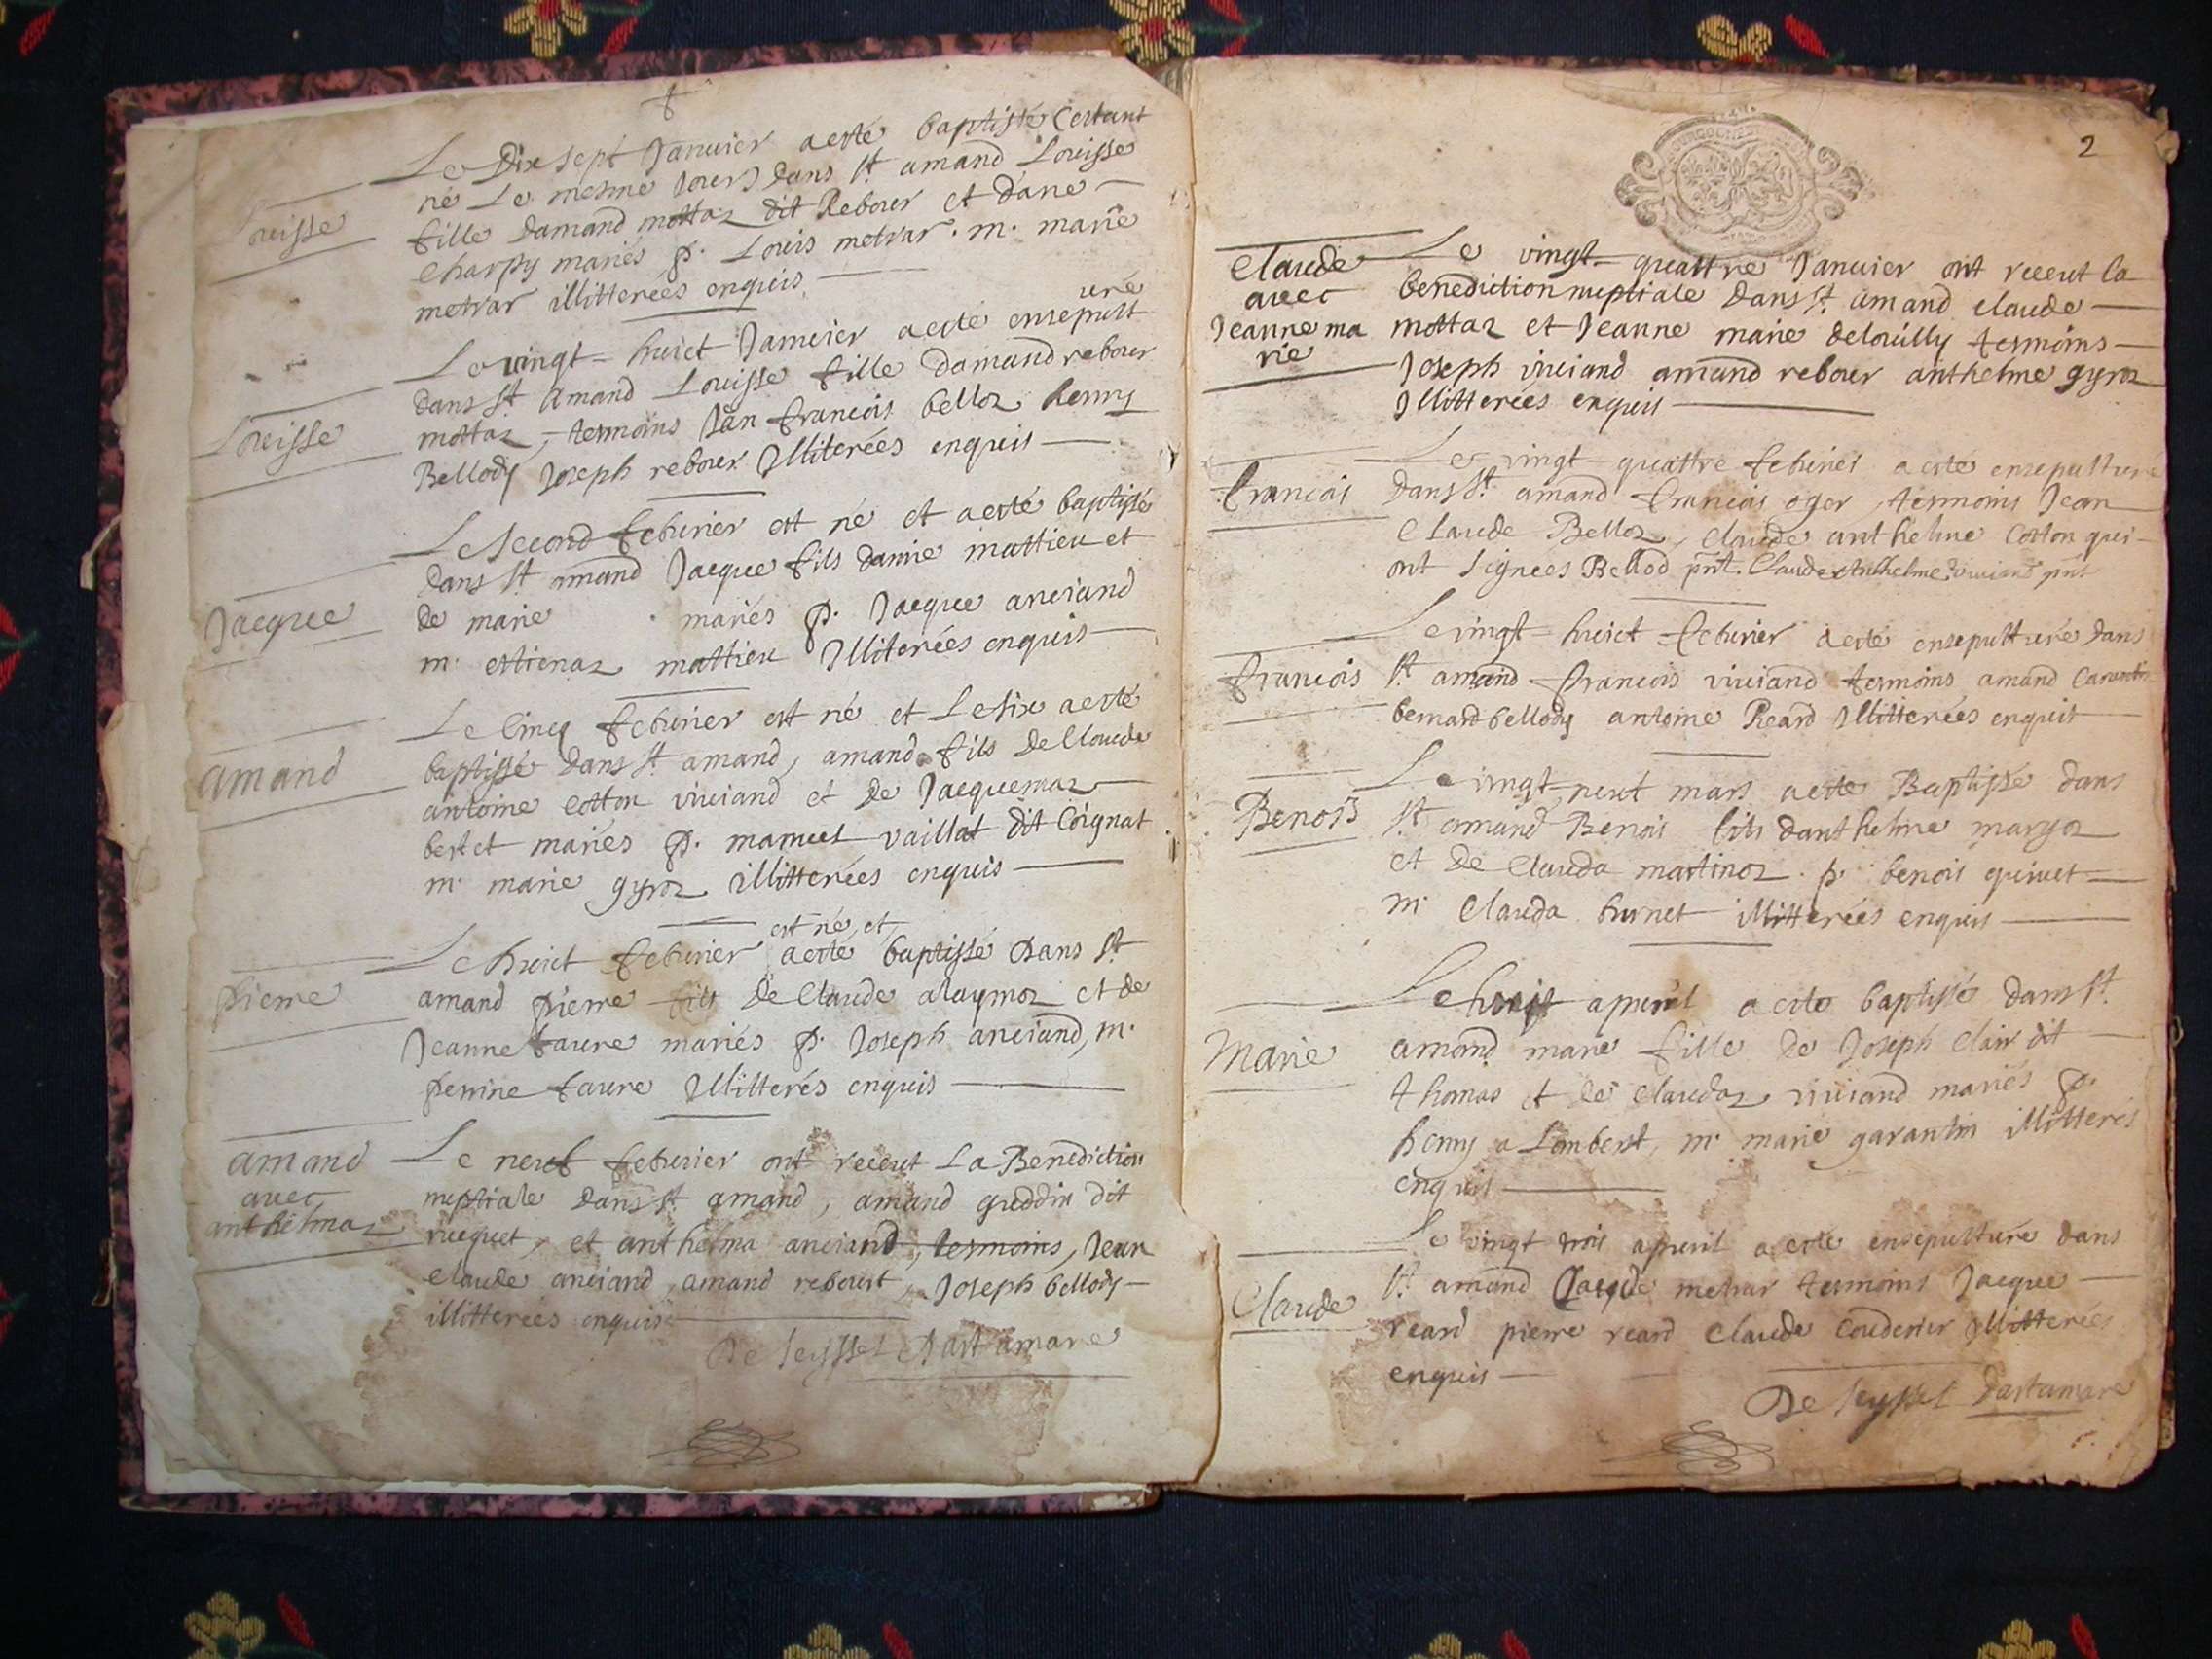 Le Dix sept Januier a esté baptisté Cestant
né Le mesme Jours dans st amand Louisse
Louisse
fille damand mottaz dit Rebour et dane
Charpy mariés p. Louis metrar. m. marie
metrar illitterées enquis
Le vingt huict Januier a esté ensepult
uré
dans st Amand Louisse fille damand rebour
Louisse
mottaz, tesmoins Jan francois belloz henry
Bellody Joseph rebour Illiterées enquis
Le second feburier est né et a esté baptisé
dans st amand Jacque fils damie mattieu et
Jacque
de marie mariés p. Jacque anciand
m. estienaz mattieu Illiterées enquis
Le Cinq feburier est né et Le six a esté
baptissé dans st amand, amand fils de Claude
amand
antoine cotton viuiand et de Jacquemaz
bertet mariés p. manuel vaillat dit Coignat
m. marie gyroz illitterées enquis
est né, et
Le huict feburier a esté baptissé dans st
pierre
amand pierre fils de Claude alaymoz et de
Jeanne faure mariés p. Joseph anciand, m.
perrine faure Illitterés enquis
amand
Le neuf feburier ont receut La Benediction
avec
nuptiale dans st amand, amand guddin dit
anthelmaz
ruquet, et anthelma anciand, tesmoins, Jean
Claude anciand, amand rebourt, Joseph bellody
illitterées enquis
De seyssel dartamare
2
Claude
Le vingt quattre Januier ont receut la
avec
benediction nuptiale dans st amand claude
Jeanne ma
mottaz et Jeanne marie delouilly tesmoins
rie
Joseph viuiand amand rebour anthelme gyroz
Illitterées enquis
Le vingt quattre feburier a esté ensepulturé
francois
dans st amand francois oger, tesmoins Jean
Claude Belloz, claude anthelme Cotton qui
ont signées Bellod pnt. Claude Anthelme viuiand pnt
Le vingt huict feburier a esté ensepulturé dans
francois
st amand francois viuiand tesmoins amand
bernard bellody antoine Reard Illitterées enquis
Le vingt neuf mars a esté Baptissé dans
Benois
st amand Benois fils danthelme maryoz
et de Clauda martinoz. p. benois quinet
m. Clauda burnet illitterées enquis
Le huist apuril a esté baptissé dans st
Marie
amand marie fille de Joseph Clair dit
thomas et de Claudaz viuiand mariés p.
henry a Lombert, m. marie garantin illitterés
enquis
Le vingt trois apuril a esté ensepulturé dans
Claude
st amand Claude metrar tesmoins Jacque
reard pierre reard Claude Couderier Illitterées
enquis
De seyssel dartamare